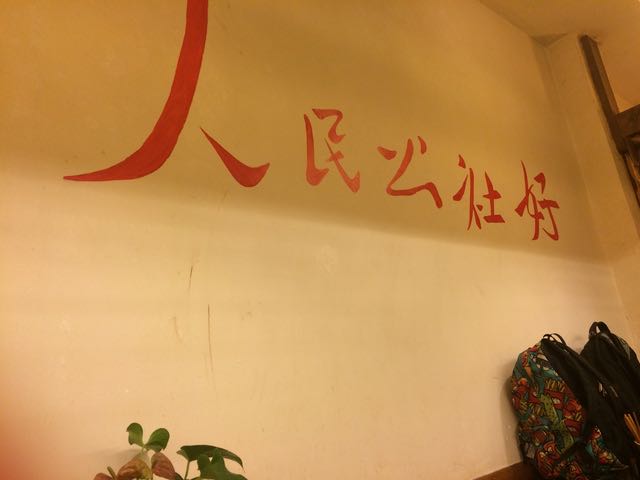 人民公社好